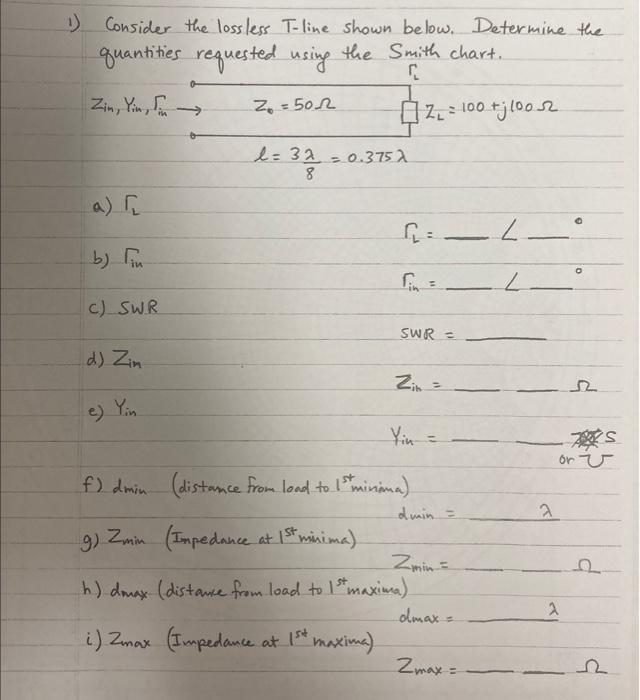 1) Consider the lossless T-line shown below. Determine the
quantities requested using the Smith chart.
Γ_L
Zin, Yin, Γin → Z₀ = 50Ω Z_L = 100 + j100 Ω
l = 3λ/8 = 0.375λ
a) Γ_L
Γ_L = ___ ∠ ___°
b) Γin
Γin = ___ ∠ ___°
c) SWR
SWR = ___
d) Zin
Zin = ___ ___ Ω
e) Yin
Yin = ___ ___ S
or ℧
f) dmin (distance from load to 1st minima)
dmin = ___ λ
g) Zmin (Impedance at 1st minima)
Zmin = ___ Ω
h) dmax (distance from load to 1st maxima)
dmax = ___ λ
i) Zmax (Impedance at 1st maxima)
Zmax = ___ ___ Ω